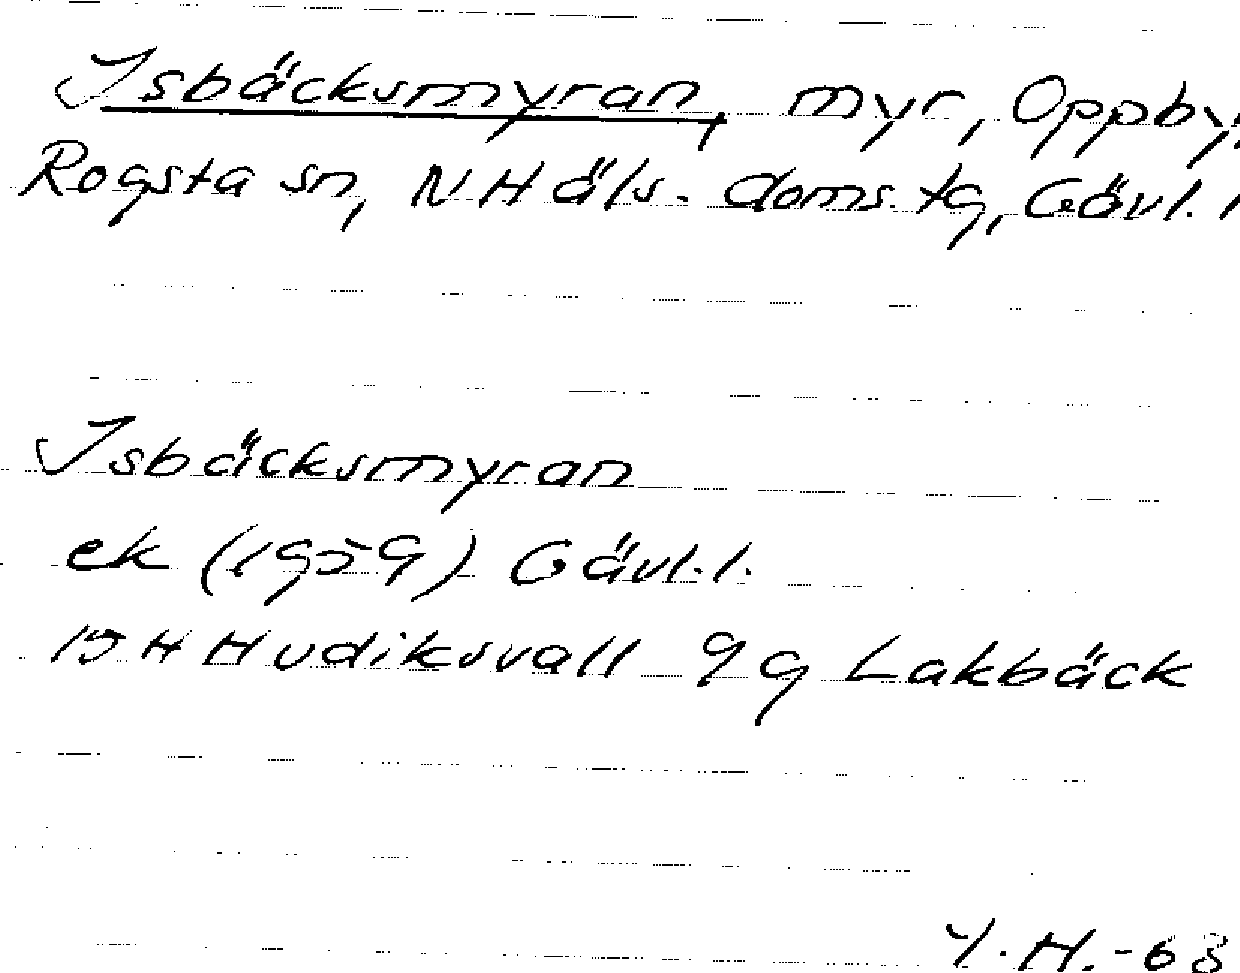 Isbäcksmyran, myr, Oppby,
Rogsta sn, N Häls. doms. tg, Gävl. l
Isbäcksmyran
ek (1959) Gävl. l.
15 H Hudiksvall 9g Lakbäck
Y. H. -68